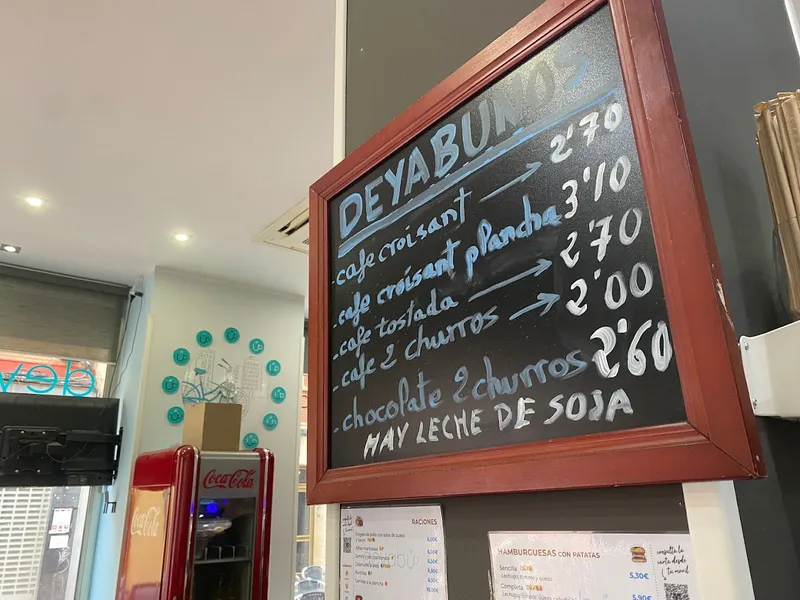 DEYABUNOS
- cafe croisant → 2'70
- cafe croisant plancha 3'10
- cafe tostada → 2'70
- cafe 2 churros → 2'00
- chocolate 2 churros 2'60
HAY LECHE DE SOJA
Coca-Cola
Coca-Cola
RACIONES
HAMBURGUESAS CON PATATAS
Sencilla
5,30€
Completa
5,90€
consulta la
carta desde
tu móvil